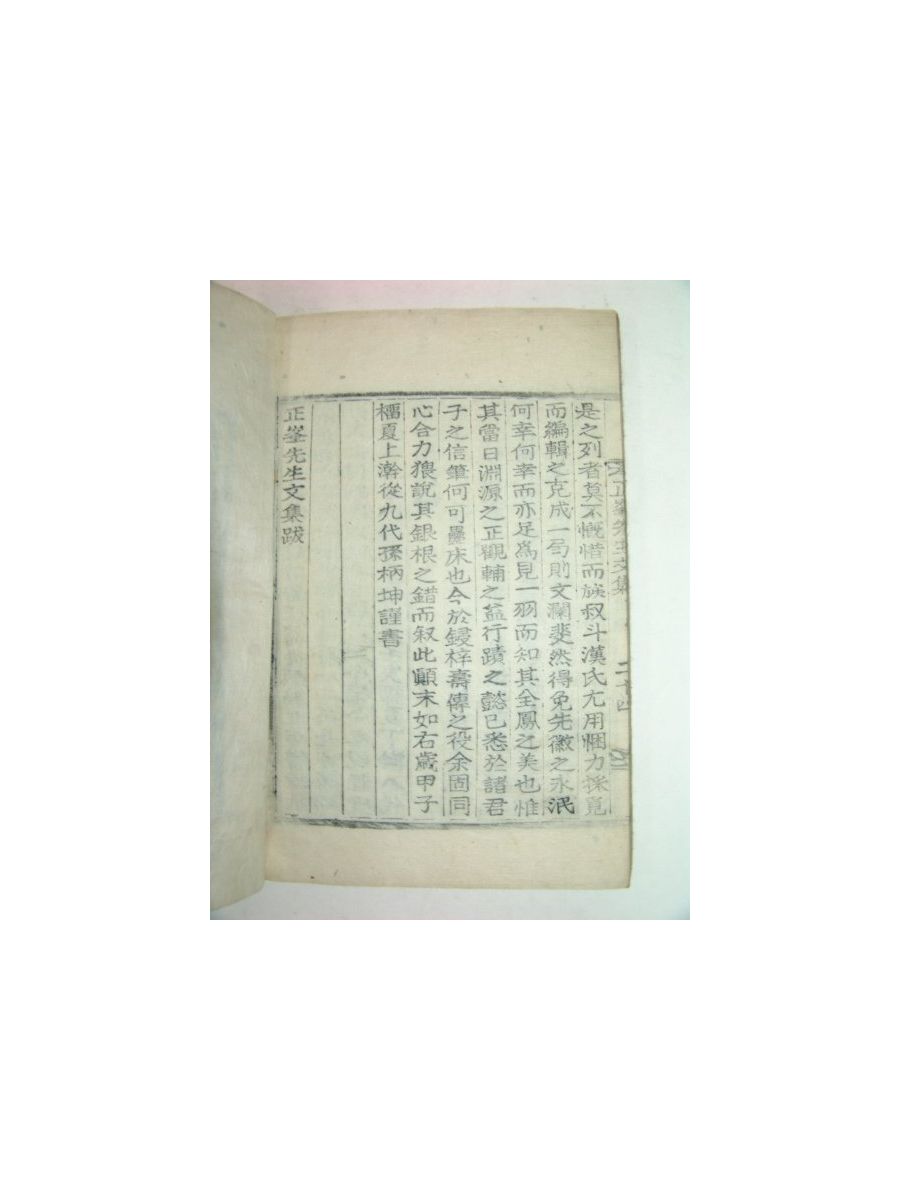 正峯先生文集
二十四
是之列者莫不慨惜而族叔斗漢氏尤用悃力採覓
而編輯之克成一局則文瀾斐然得免先徽之永泯
何幸何幸而亦足爲見一羽而知其全鳳之美也惟
其當日淵源之正觀輔之益行蹟之懿已悉於諸君
子之信筆何可疊床也今於鋟梓壽傳之役余固同
心合力猥說其銀根之錯而叙此顚末如右歲甲子
榴夏上澣從九代孫柄坤謹書
正峯先生文集跋